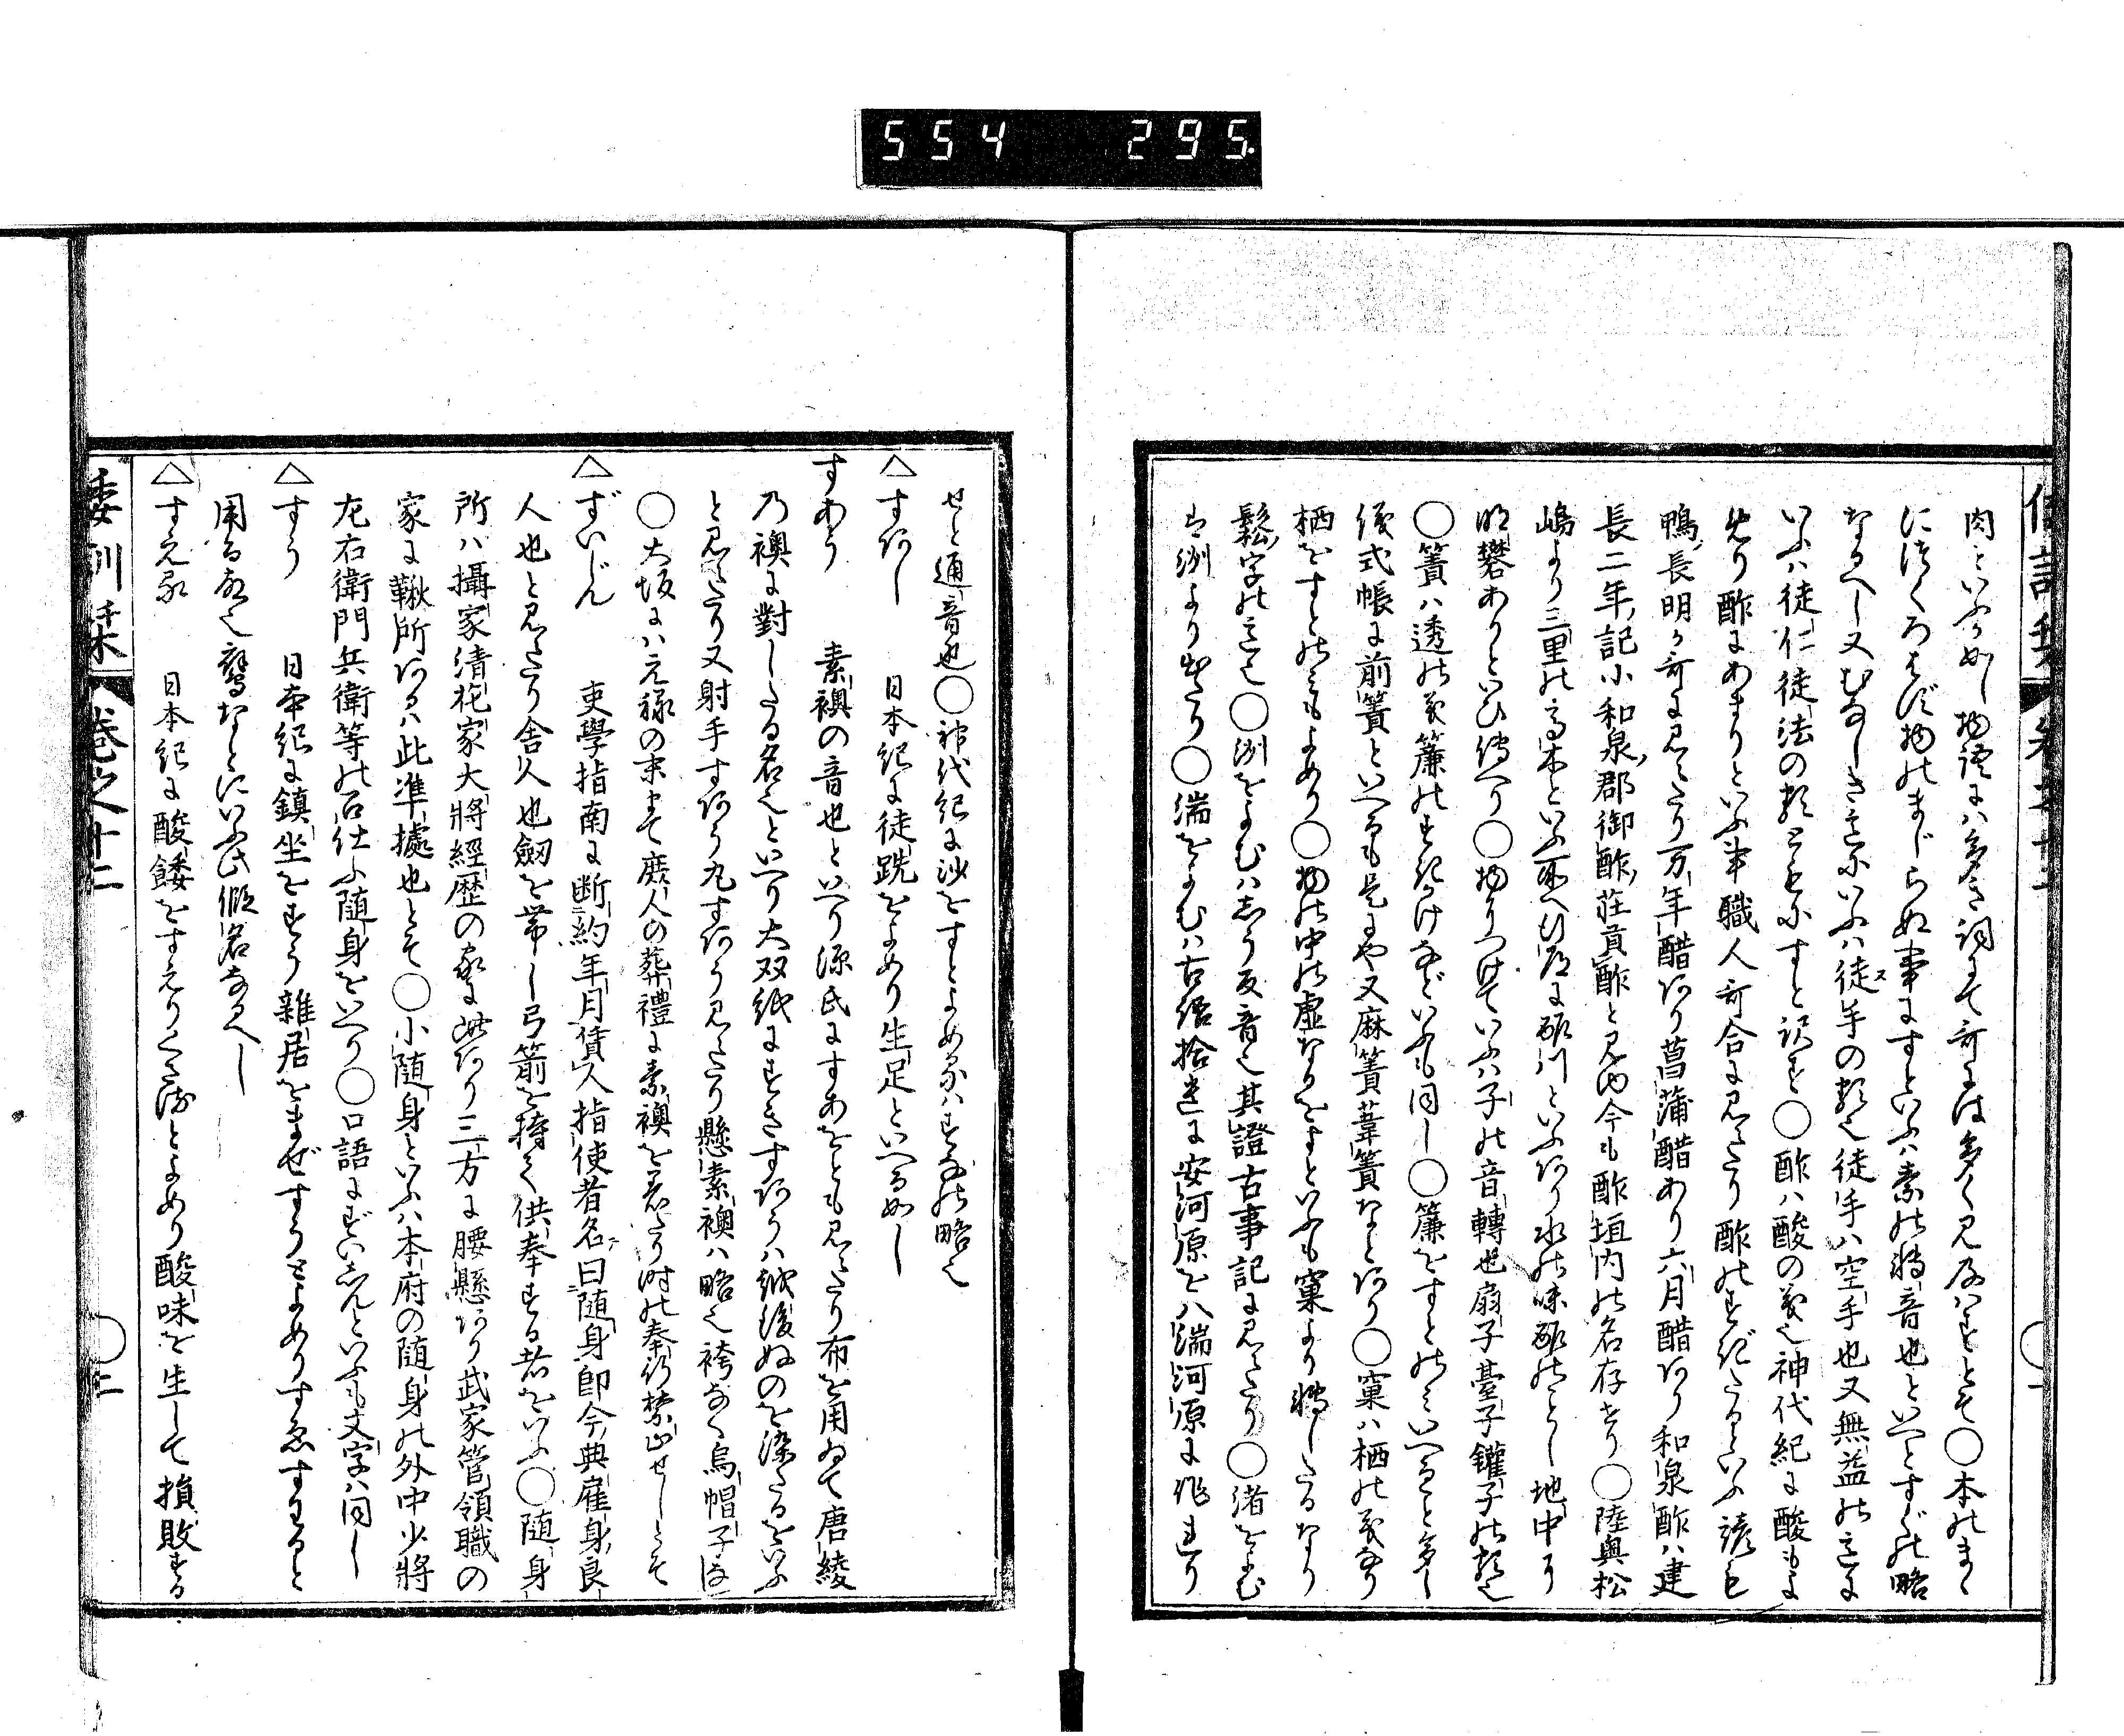 554 295.
肉といふか如し物語には多き詞にて哥には多く見及はすとそ◯本のまゝ
につくろはす物のましらぬ事にすといふは素の轉音也といへとすぐの略
なるへし又むなしき意にいふは徒手の類也徒手は空手也又無益の意に
いふは徒仁徒法の類ともにすと訳す◯酢は酸の義也神代紀に酸もよ
めり酢にあまりといふ事職人哥合に見えたり酢のすぎたるといふ諺も
鴨長明か哥に見えたり万年醋あり菖蒲醋あり六月醋あり和泉酢は建
長二年記小和泉郡御酢莊貢酢と見ゆ今も酢垣内の名存せり◯陸奥松
嶋より三里の高木といふ所へ行道に酢川といふあり水の味酢のことし地中に
明礬ありといひ傳へり◯物につけていふは子の音轉也扇子臺子鑵子の類也
◯簀は透の義簾のすだけなどいふも同し◯簾をすとのみいへること多し
儀式帳に前簀といへるも是にや又麻簀葦簀なとあり◯窠は栖の義なり
栖をすとのみもよめり◯物の中の虚なるをすといふも窠より轉したるなり
鬆字の意也◯洲をよむはしう反音也其證古事記に見えたり◯渚をよむ
は洲より出たり◯湍をよむは古語拾遺に安河原を八湍河原に作れり
せと通音也◯神代紀に沙をすとよめるはすなの略也
△すあし 日本紀に徒跣をよめり生足といへる如し
すあう 素襖の音也といへり源氏にすあをとも見えたり布を用ゐて唐綾
乃襖に對したる名也といへり大双紙にすきすあうは越後ぬのを染たるをいふ
と見えたり又射手すあう丸すあう見えたり懸素襖は略也袴なく烏帽子は
◯大坂には元禄の末まて庶人の葬禮に素襖を着たり時の奉行禁止せしとそ
△ずいじん 吏學指南に断約年月賃人指使者名曰随身卽今典雇身良
人也と見えたり舎人也劒を帯し弓箭を持て供奉する者をいふ◯随身
所は攝家清花家大將經歴の家に此あり三方に腰懸あり武家管領職の
家に鞦所あるは此準據也とそ◯小随身といふは本府の随身の外中少將
左右衛門兵衛等の召仕ふ随身をいへり◯口語にずいしんといふも文字は同し
△すう 日本紀に鎮坐をすう雜居をまぜすうとよめりすゑすわると
用る故也鷹なとにいふ此假名なるへし
△すえる 日本紀に酸餧をすえりくさるとよめり酸味を生して損敗する
倭訓栞 卷之十二
◯二